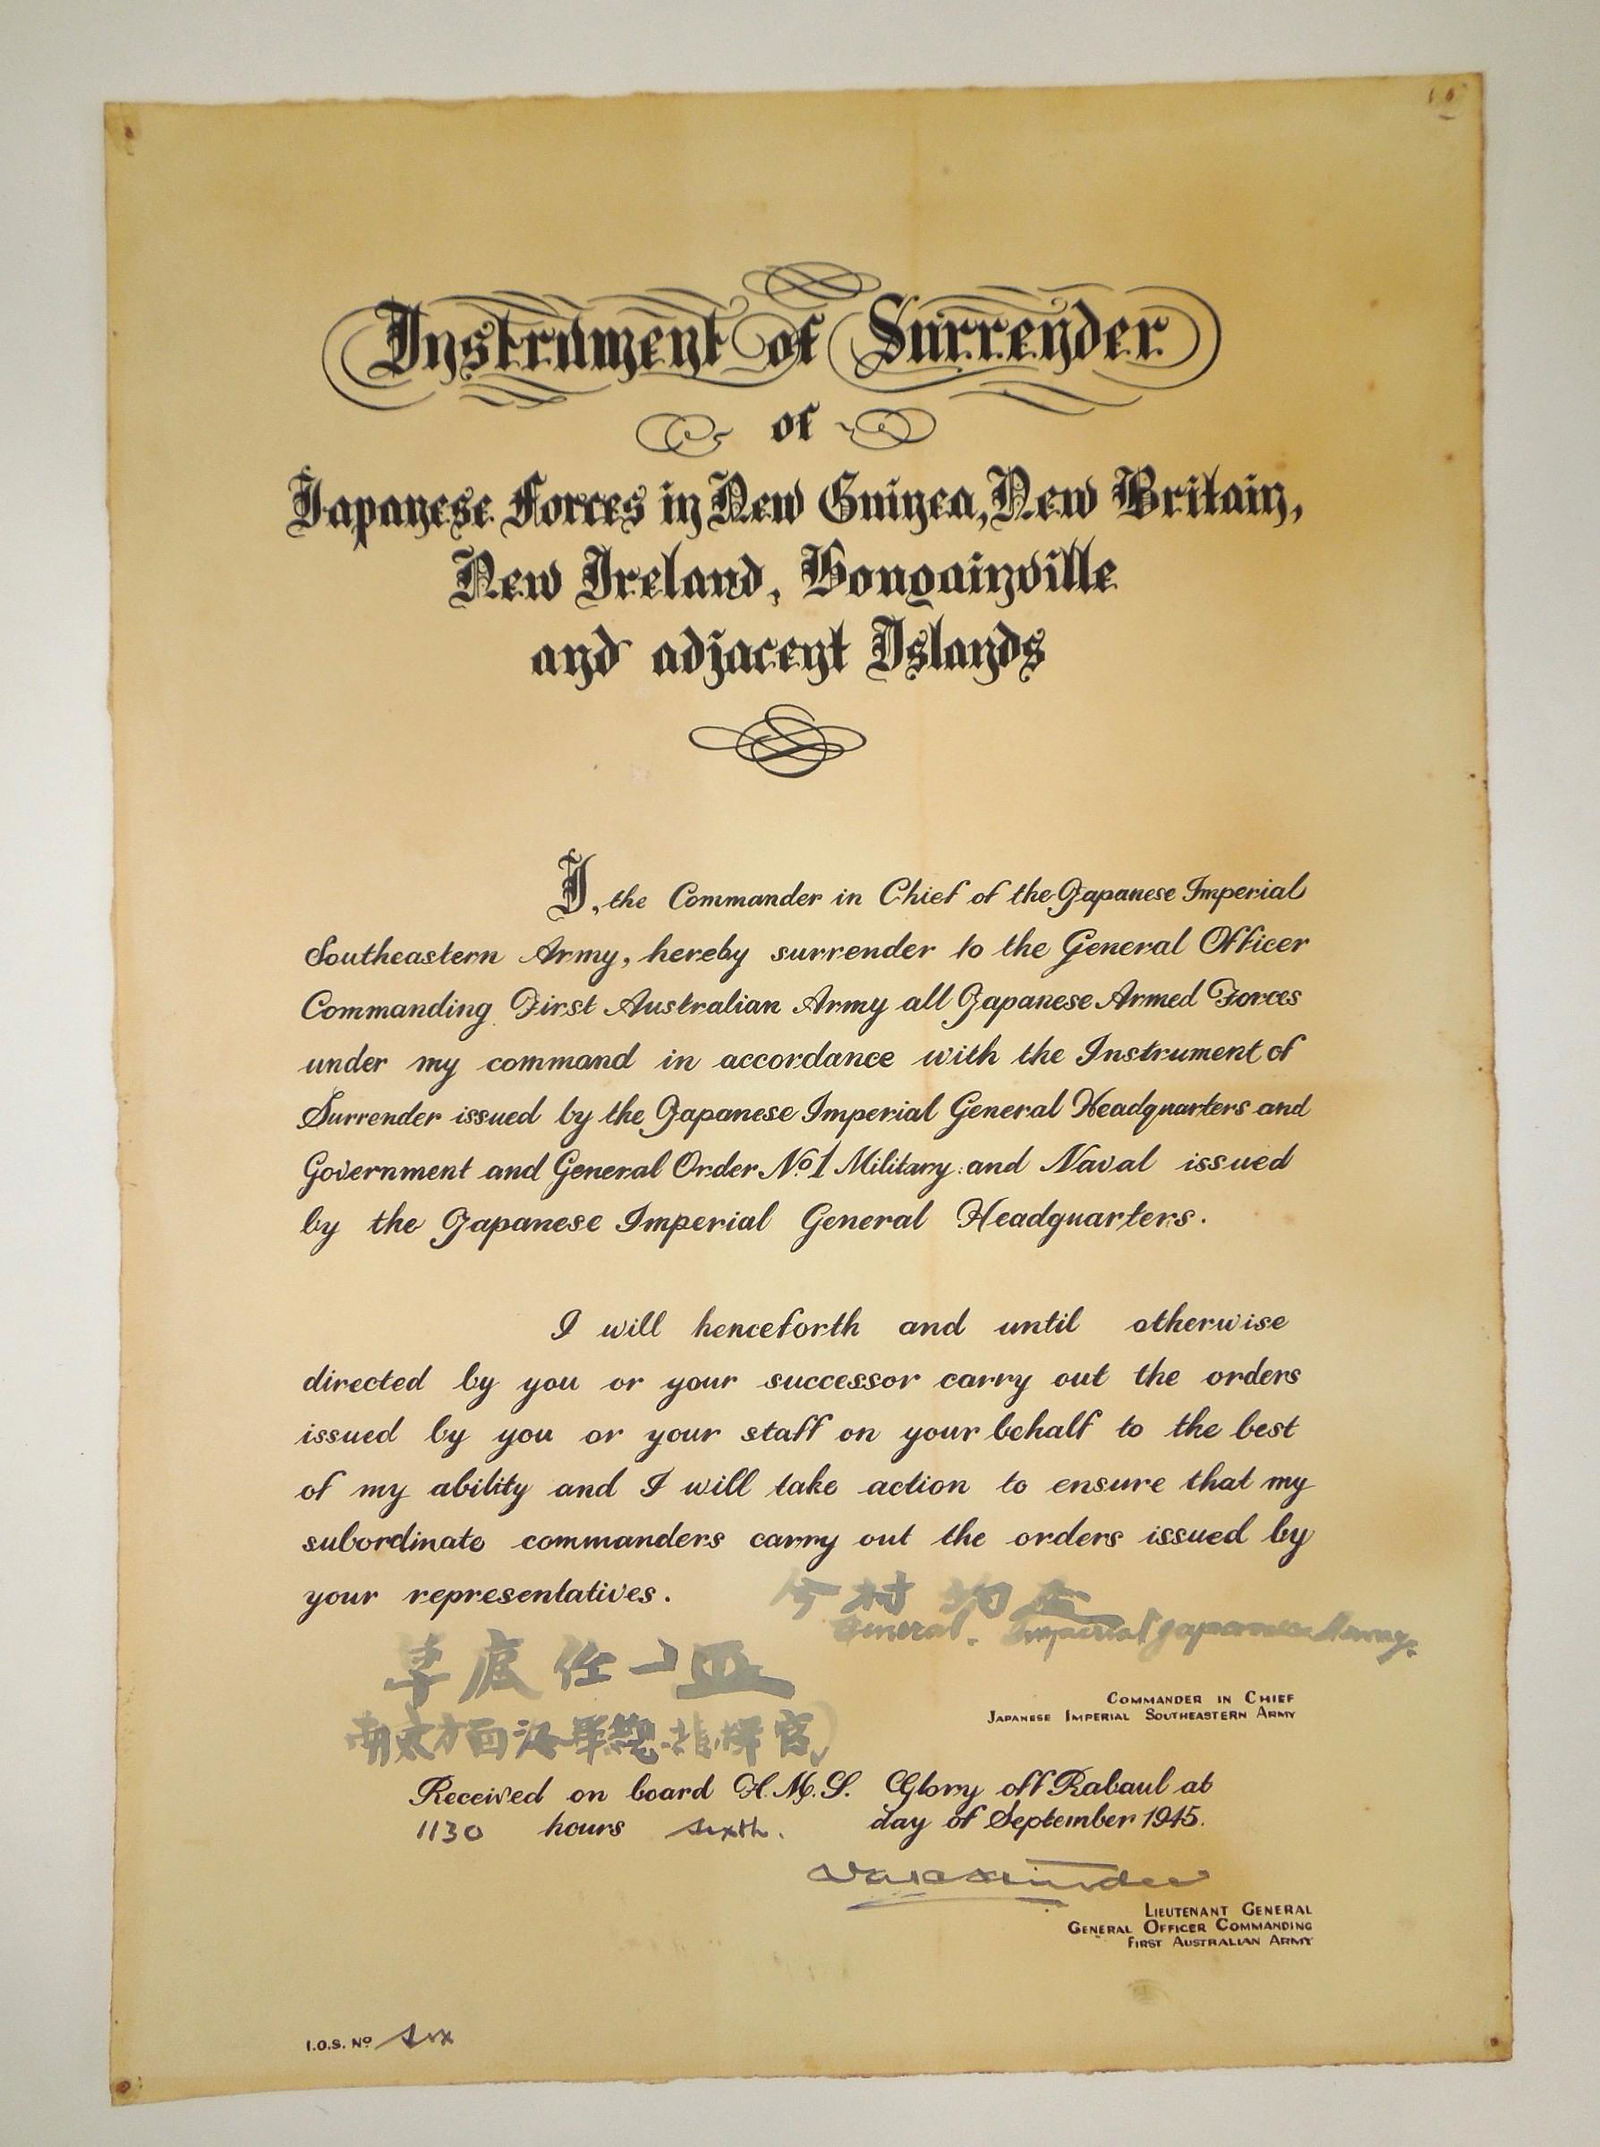 Instrument of Surrender
of
Japanese Forces in New Guinea, New Britain,
New Ireland, Bougainville
and adjacent Islands
I, the Commander in Chief of the Japanese Imperial
Southeastern Army, hereby surrender to the General Officer
Commanding First Australian Army all Japanese Armed Forces
under my command in accordance with the Instrument of
Surrender issued by the Japanese Imperial General Headquarters and
Government and General Order No. 1 Military and Naval issued
by the Japanese Imperial General Headquarters.
I will henceforth and until otherwise
directed by you or your successor carry out the orders
issued by you or your staff on your behalf to the best
of my ability and I will take action to ensure that my
subordinate commanders carry out the orders issued by
your representatives.
今村 均
General. Imperial Japanese Army.
草鹿任一
COMMANDER IN CHIEF
JAPANESE IMPERIAL SOUTHEASTERN ARMY
南東方面海軍總指揮官
Received on board H.M.S. Glory off Rabaul at
1130 hours sixth. day of September 1945.
LIEUTENANT GENERAL
GENERAL OFFICER COMMANDING
FIRST AUSTRALIAN ARMY
I.O.S. No Six